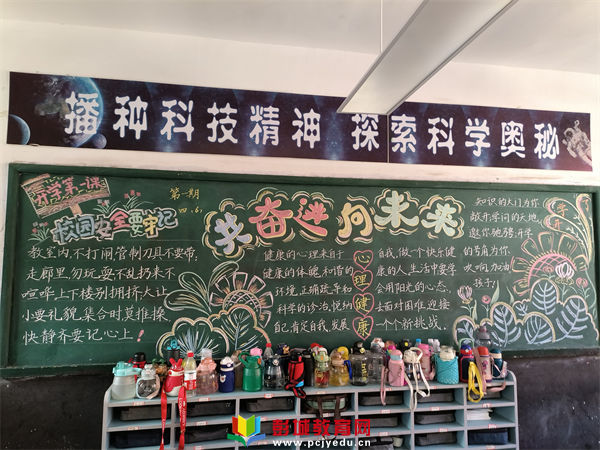 播种科技精神 探索科学奥秘
开学第一课
校园安全要牢记
第一期
四.6.
教室内,不打闹,管制刀具不要带;
走廊里,勿玩耍,不乱扔来不
喧哗,上下楼别拥挤,大让
小要礼貌,集合时莫推搡,
快静齐要记心上!
共奋进 向未来
健康的心理来自于
健康的体魄,和谐的
环境,正确疏导和
科学的诊治,悦纳
自己,肯定自我,发展
心理健康
自我,做一个快乐健
康的人,生活中要学
会用阳光的心态,
去面对困难,迎接
一个个新挑战。
知识的大门为你
敞开,学问的天地
邀你驰骋,开学
的号角为你
吹响,加油
孩子!
开学
彭城教育网
www.pcjyedu.cn